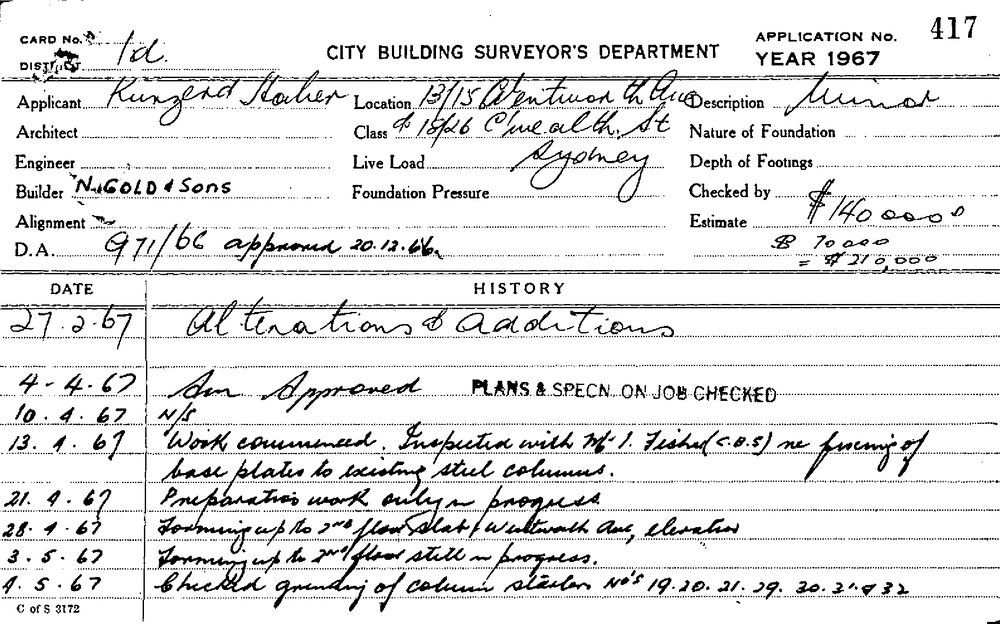 CARD No. 1d.
DISTRICT
CITY BUILDING SURVEYOR'S DEPARTMENT
APPLICATION No. 417
YEAR 1967
Applicant Location 13/15 Wentworth Ave Description Minor
Architect Class & 18/26 C'wealth. St Nature of Foundation
Engineer Live Load Sydney Depth of Footings
Builder N. GOLD & Sons Foundation Pressure Checked by
Alignment Estimate $140000
D.A. 971/66 approved 20.12.66.
$ 70000
= $210,000
DATE HISTORY
27.2.67 Alterations & additions
4-4.67 Approved PLANS & SPECN. ON JOB CHECKED
10.4.67 N/S
13.4.67 Work commenced. Inspected with Mr Fisher (C.B.S) re of
base plates to existing steel columns.
21.4.67 Preparation work only in progress
28.4.67 Forming up to 2nd floor slab, Wentworth Ave, elevation
3.5.67 Forming up to 2nd floor still in progress.
4.5.67 Checked of column starters No's 19.20.21.29.30.31.& 32
C of S 3172